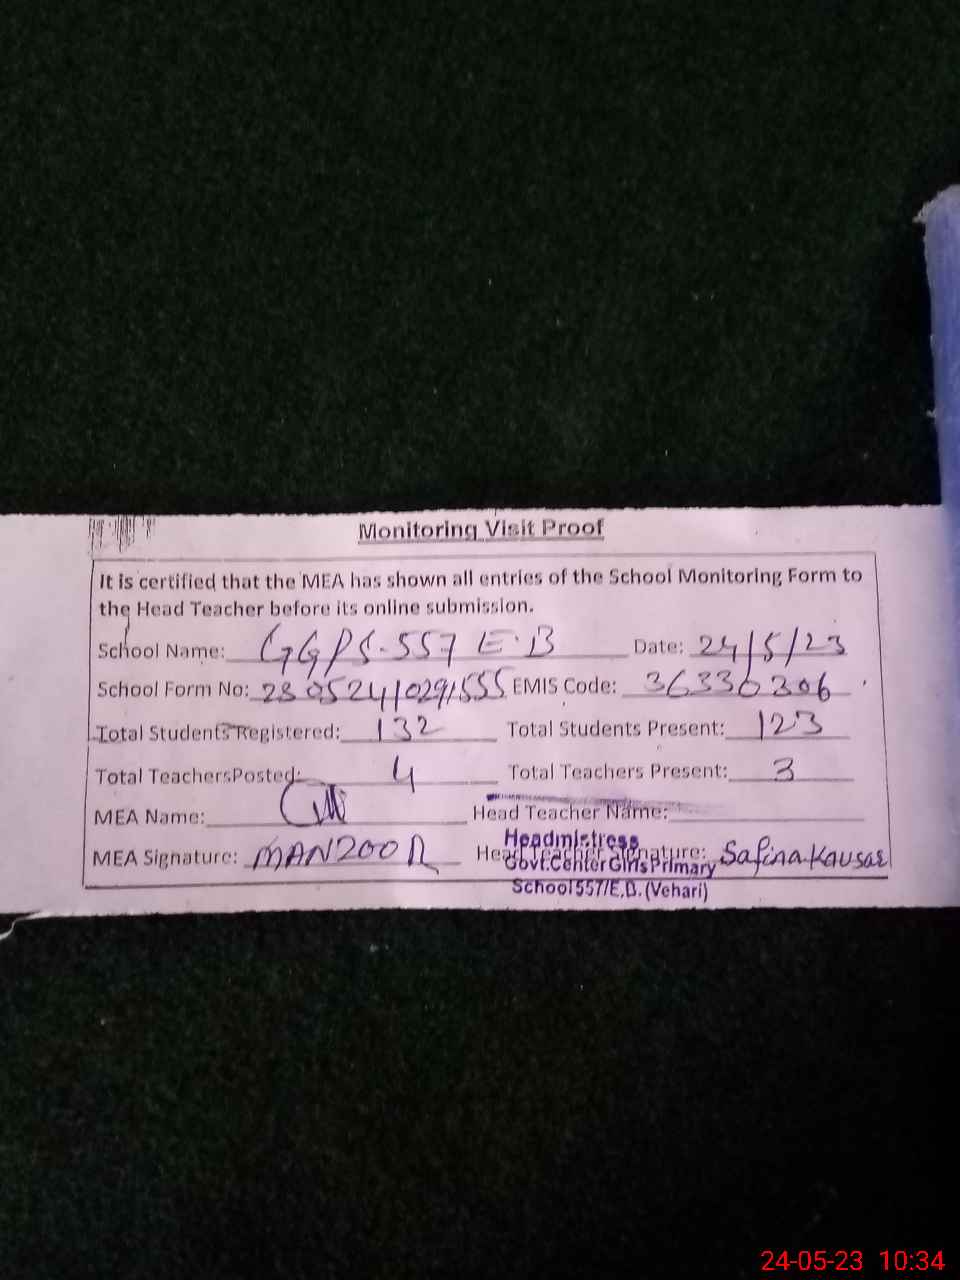 Monitoring Visit Proof
It is certified that the MEA has shown all entries of the School Monitoring Form to
the Head Teacher before its online submission.
School Name: GGPS-557 E.B Date: 24/5/23
School Form No: EMIS Code: 36330306
Total Students Registered: 132 Total Students Present: 123
Total TeachersPosted: 4 Total Teachers Present: 3
MEA Name: Head Teacher Name:
MEA Signature: MANZOOR Head Teacher Signature: Safina Kausar
Headmistress
Govt.Center Girls Primary
School 557/E.B. (Vehari)
24-05-23 10:34